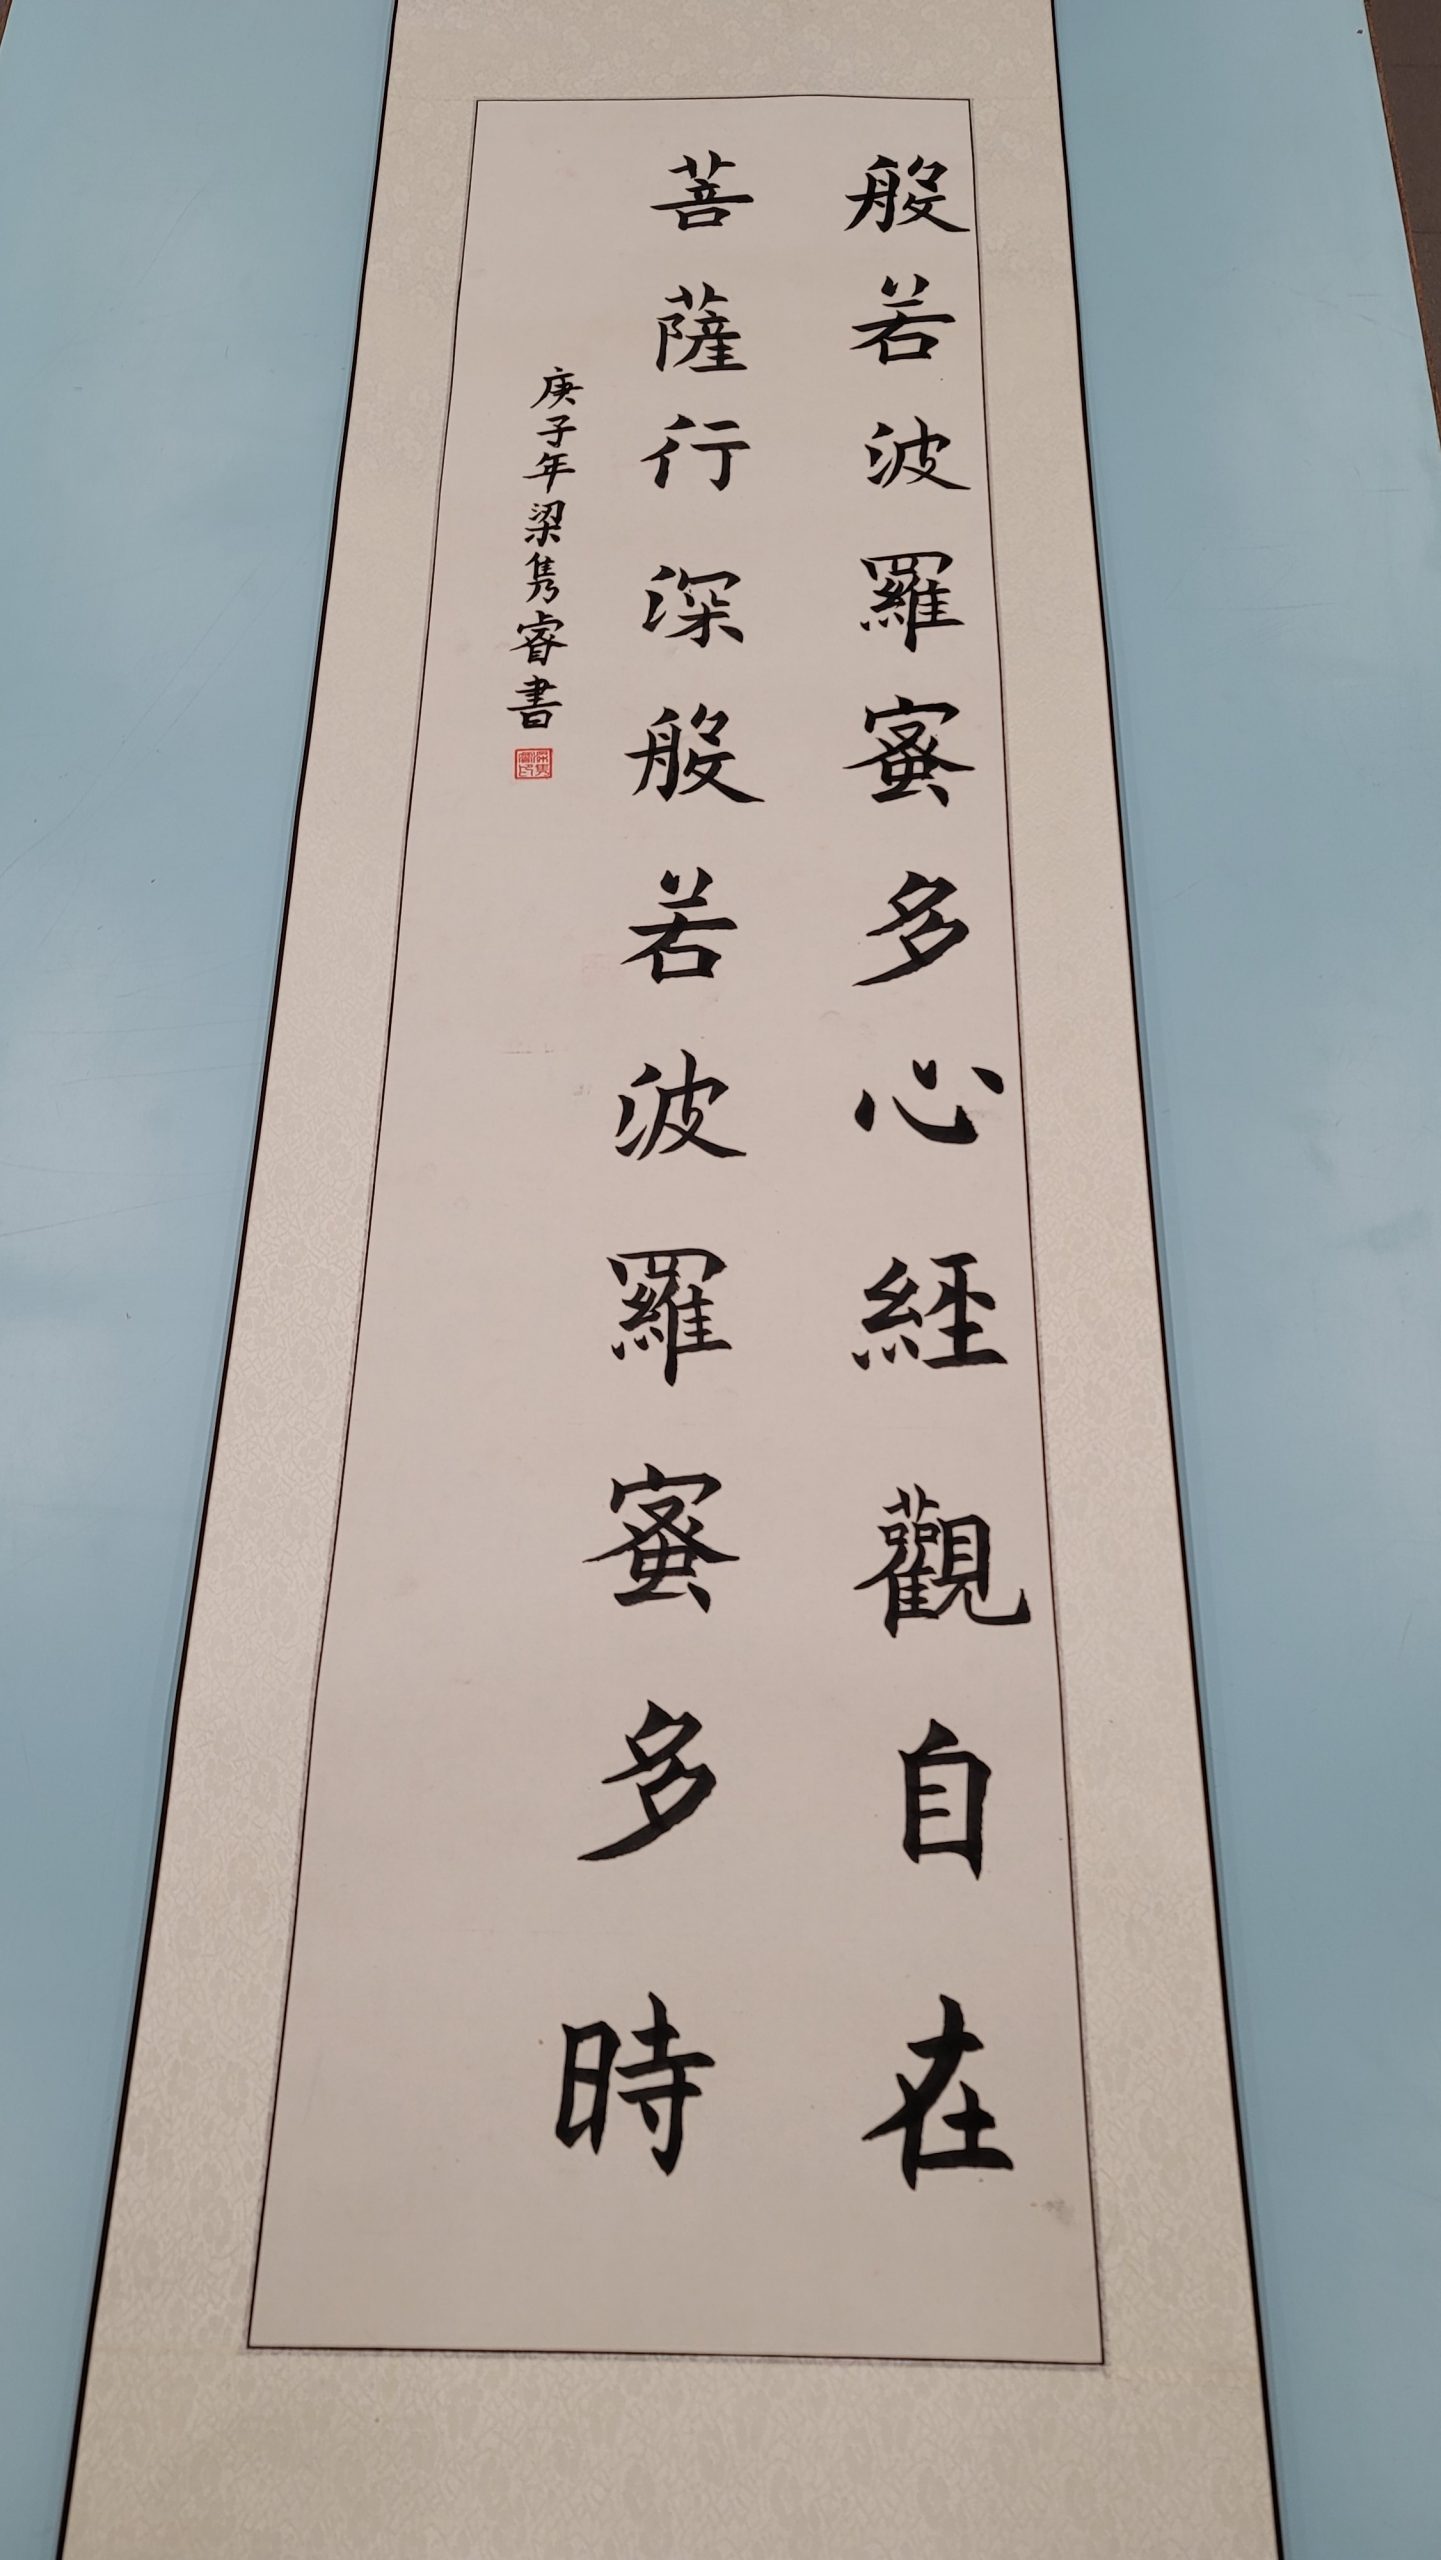 般若波羅蜜多心經觀自在
菩薩行深般若波羅蜜多時
庚子年梁隽睿書